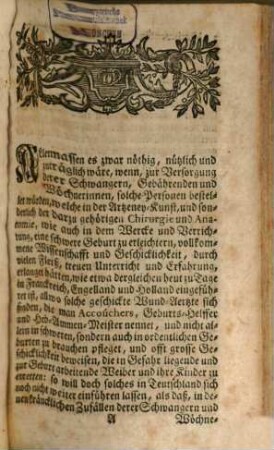 Allermassen es zwar nöthig, nützlich und
zuträglich wäre, wenn, zur Versorgung
derer Schwangern, Gebährenden und
Wöchnerinnen, solche Personen bestel-
let würden, welche in der Artzeney-Kunst, und son-
derlich der darzu gehörigen Chirurgie und Ana-
tomie, wie auch in dem Wercke und Verrich-
tung, eine schwere Geburt zu erleichtern, vollkom-
mene Wissenschafft und Geschicklichkeit, durch
vielen Fleiß, treuen Unterricht und Erfahrung,
erlanget hätten, wie etwa dergleichen heut zu Tage
in Franckreich, Engelland und Holland eingefüh-
ret ist, allwo solche geschickte Wund-Aertzte sich
finden, die man Accoûchers, Geburts-Helffer
und Heb-Ammen-Meister nennet, und nicht al-
lein in schweren, sondern auch in ordentlichen Ge-
burten zu brauchen pfleget, und offt grosse Ge-
schicklichkeit beweisen, die in Gefahr liegende und
zur Geburt arbeitende Weiber und ihre Kinder zu
erretten: so will doch solches in Teutschland sich
noch nicht weiter einführen lassen, als daß, in de-
nen kräncklichen Zufällen derer Schwangern und
A Wöchne-